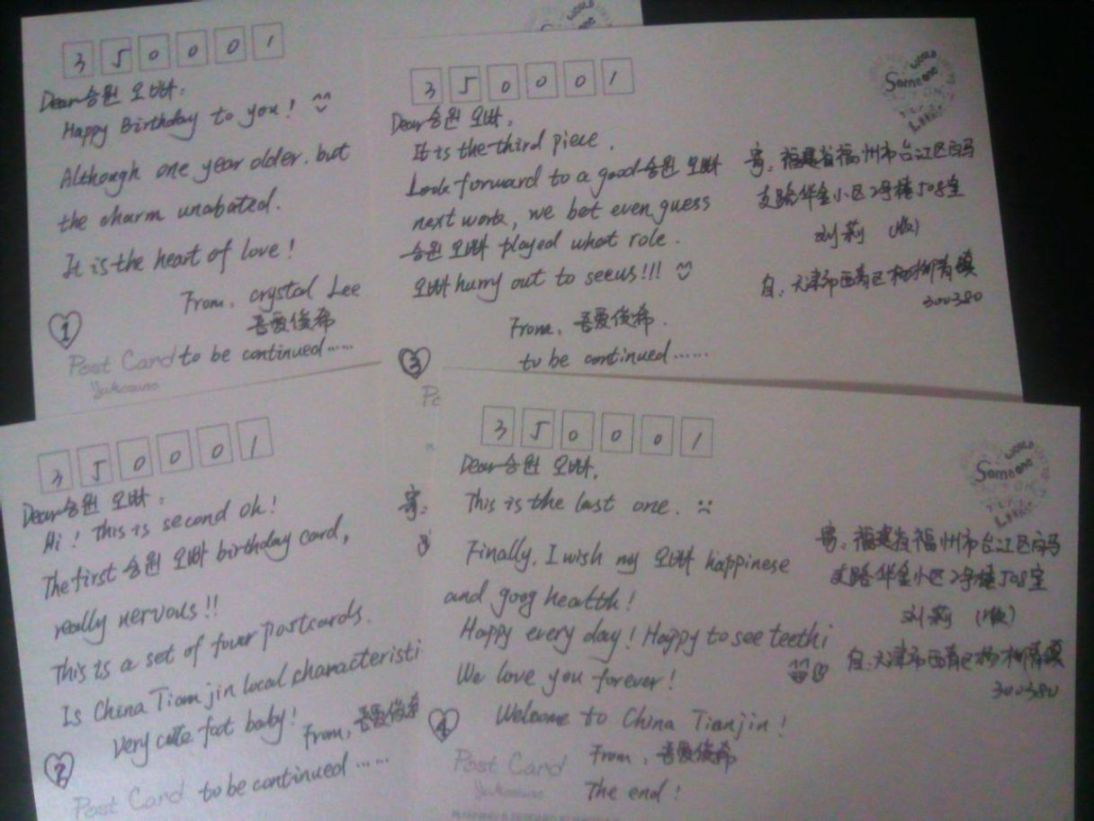 350001
Dear 승원 오빠:
Happy Birthday to you! ^^
Although one year older. but
the charm unabated.
It is the heart of love!
From. crystal Lee
吾爱俊希
1
Post Card to be continued......
350001
Dear 승원 오빠.
It is the third piece.
Look forward to a good 승원 오빠
next work, we bet even guess
승원 오빠 played what role.
오빠 hurry out to see us!!!
From. 吾爱俊希.
to be continued......
3
WORLD
Someone
Like
寄:福建省福州市台江区白马
支路华金小区2号楼508室
刘莉 (收)
自:天津市西青区杨柳青镇
300380
350001
Dear 승원 오빠:
Hi! This is second oh!
The first 승원 오빠 birthday card,
really nervous!!
This is a set of four postcards.
Is China Tianjin local characteristi
Very cute foot baby!
From, 吾爱俊希
2
Post Card to be continued......
寄:
350001
Dear 승원 오빠.
This is the last one.
Finally, I wish my 오빠 happinese
and goog health!
Happy every day! Happy to see teethi
We love you forever!
Welcome to China Tianjin!
4
Post Card
From. 吾爱俊希
The end!
WORLD
Someone
Like
寄:福建省福州市台江区白马
支路华金小区2号楼508室
刘莉 (收)
自:天津市西青区杨柳青镇
300380